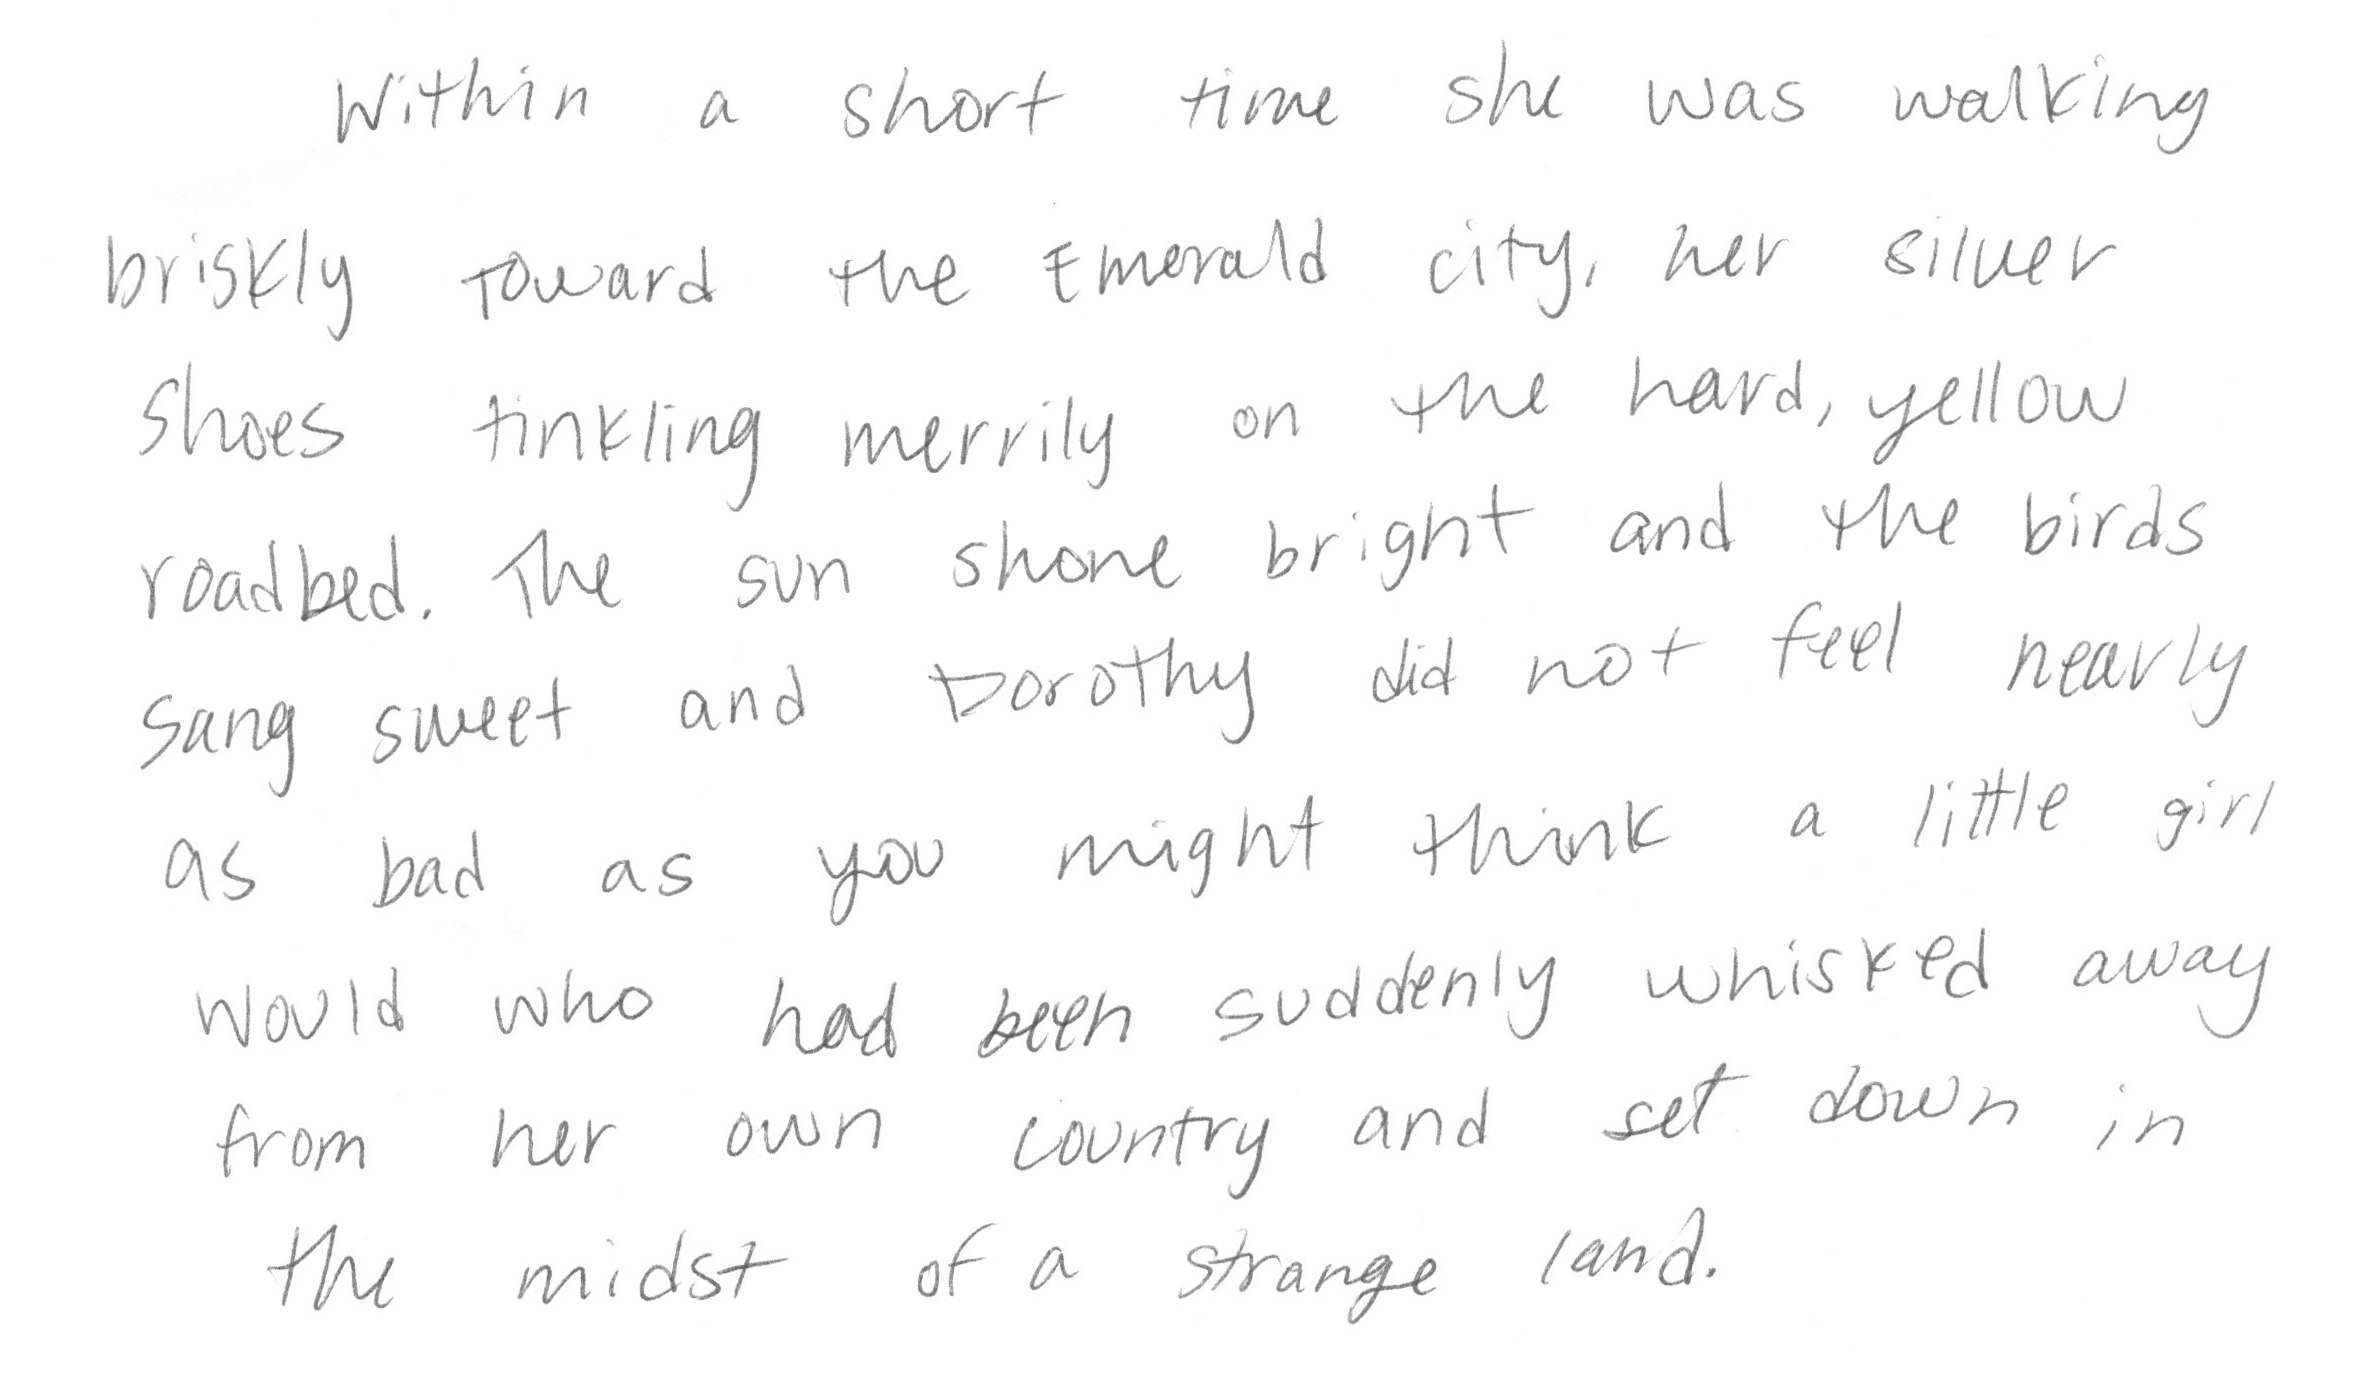 Within a short time she was walking
briskly toward the Emerald city, her silver
shoes tinkling merrily on the hard, yellow
roadbed. The sun shone bright and the birds
sang sweet and Dorothy did not feel nearly
as bad as you might think a little girl
would who had been suddenly whisked away
from her own country and set down in
the midst of a strange land.